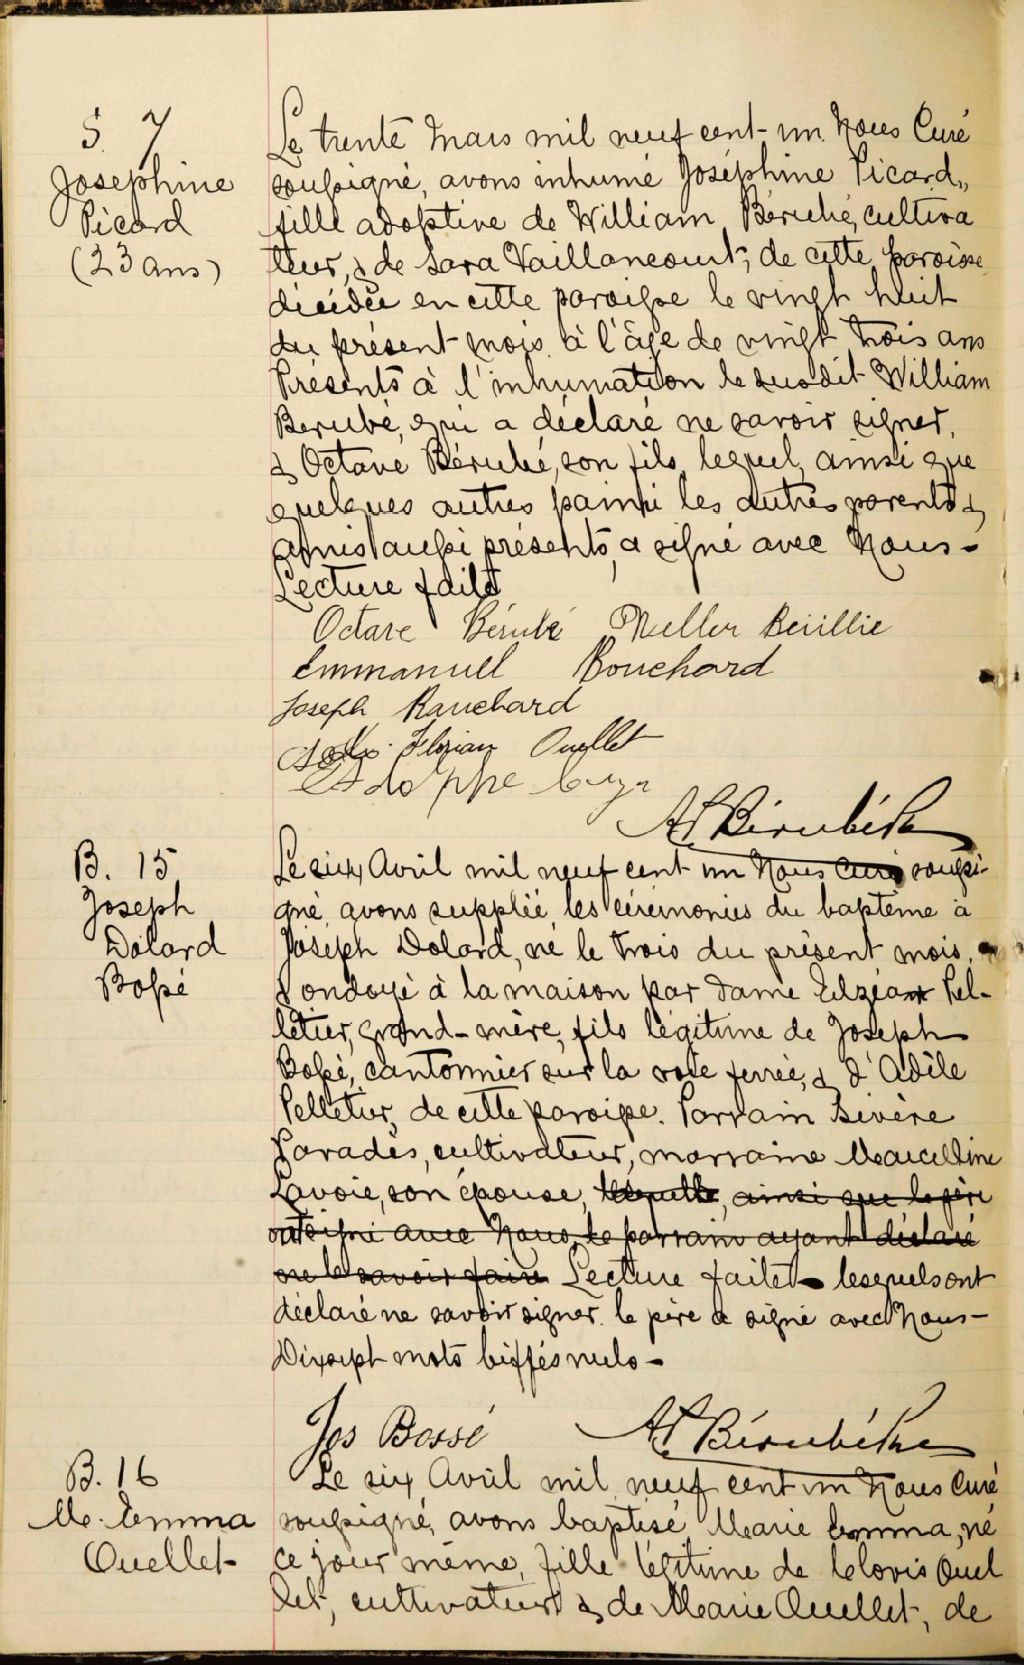 S. 7
Josephine
Picard
(23 ans)
Le trente Mars mil neuf cent un Nous Curé
soussigné, avons inhumé Joséphine Picard,
fille adoptive de William Bérubé, cultiva
teur, & de Sara Vaillancourt, de cette paroisse
décédée en cette paroisse le vingt huit
du présent mois à l'âge de vingt trois ans
Présents à l'inhumation le susdit William
Berubé, qui a déclaré ne savoir signer,
& Octave Bérubé, son fils, lequel, ainsi que
quelques autres parmi les autres parents &
amis aussi présents, a signé avec Nous -
Lecture faite
Octave Bérubé
Emmanuel Bouchard
Joseph Bauchard
Florian Ouellet
Adolphe
Bérubé Ptre
B. 15
Joseph
Dolard
Bossé
Le six Avril mil neuf cent un Nous Curé soussi-
gné avons supplée les cérémonies du baptême à
Joseph Dolard, né le trois du présent mois,
& ondoyé à la maison par Dame Elzéar Pel-
letier, grand-mère, fils légitime de Joseph
Bossé, cantonnier sur la voie ferrée, & d'Adèle
Pelletier, de cette paroisse. Parrain Sévère
Paradis, cultivateur, marraine Marcelline
Lavoie, son épouse, laquelle, ainsi que le père
ont signé avec Nous, le parrain ayant déclaré
ne le savoir faire Lecture faite - lesquels ont
déclaré ne savoir signer. le père a signé avec Nous -
Dixsept mots biffés nuls -
Jos Bossé Bérubé Ptre
B. 16
M. Emma
Ouellet
Le six Avril mil neuf cent un Nous Curé
soussigné, avons baptisé Marie Emma, né
ce jour même, fille légitime de Clovis Ouel
let, cultivateur & de Marie Ouellet, de